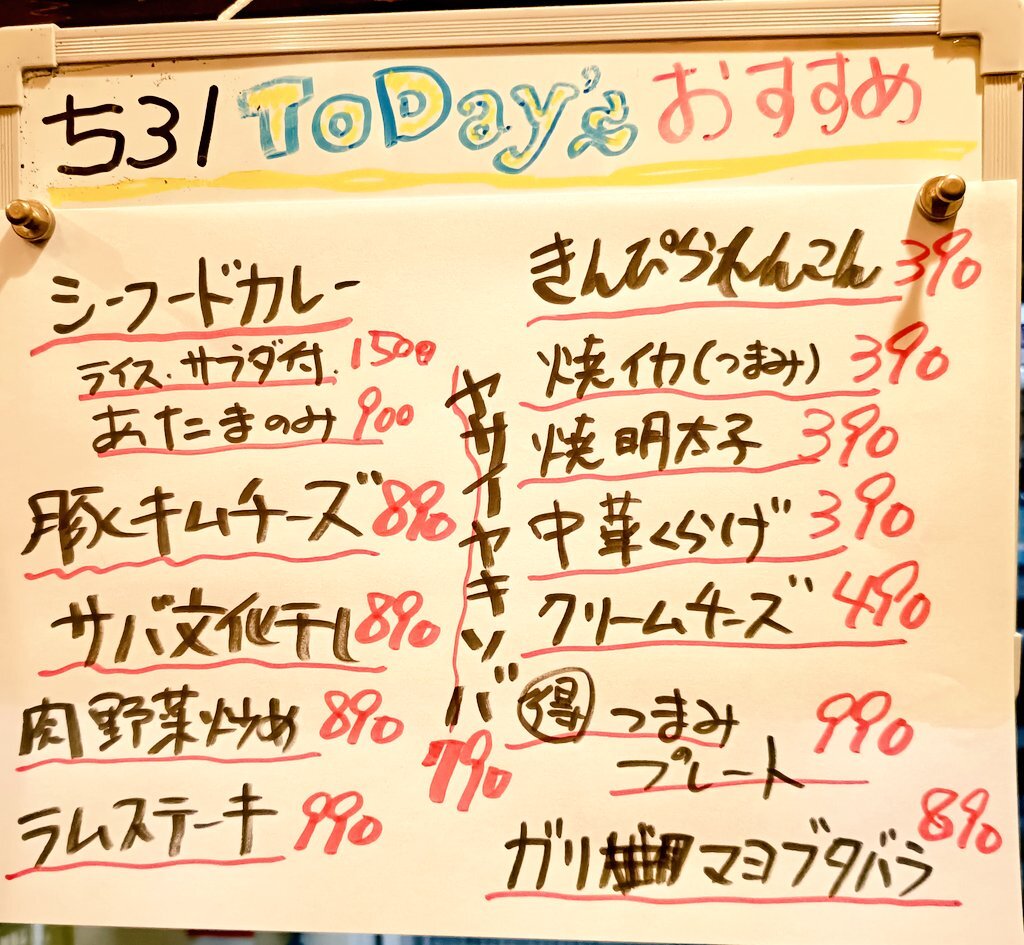 531 ToDay's おすすめ
シーフードカレー
ライス・サラダ付 1500
あたまのみ 900
豚キムチーズ 890
サバ文化干し 890
肉野菜炒め 890
ラムステーキ 990
ヤサイヤキソバ
790
きんぴられんこん 390
焼イカ(つまみ) 390
焼明太子 390
中華くらげ 390
クリームチーズ 490
得 つまみ 990
プレート
ガリ マヨブタバラ 890